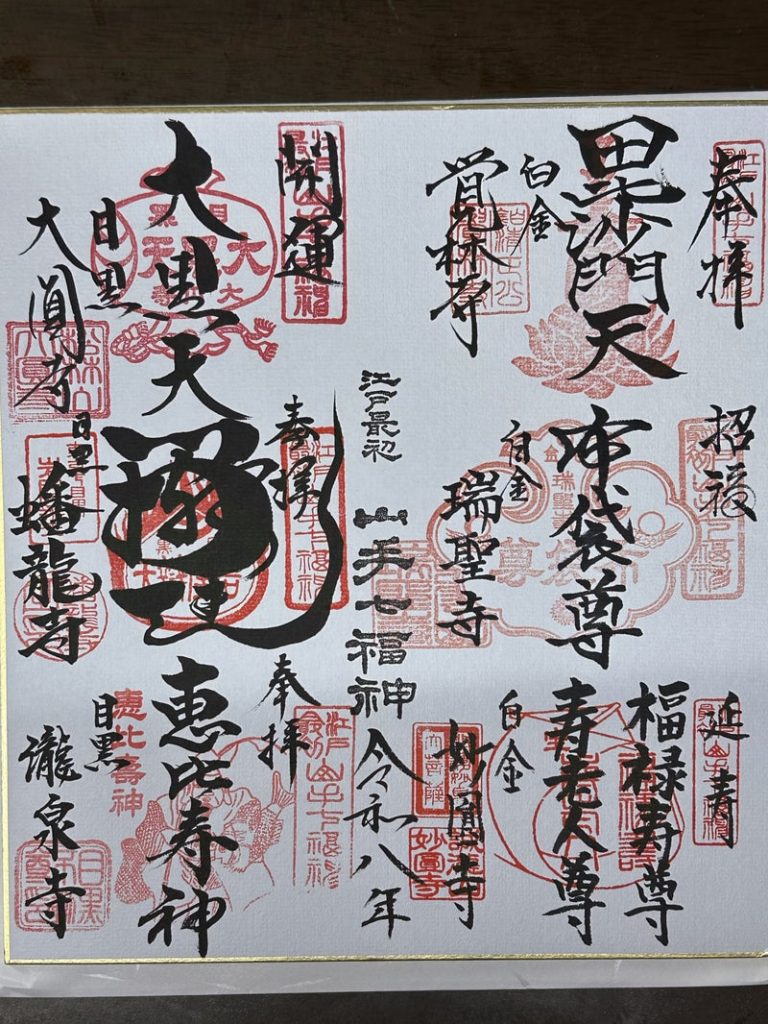 奉拝
毘沙門天
白金
覚林寺
招福
布袋尊
白金
瑞聖寺
延寿
福禄寿尊
寿老人尊
白金
妙圓寺
江戸最初
山手七福神
令和八年
開運
大黒天
目黒
大圓寺
奉拝
目黒
蟠龍寺
奉拝
恵比寿神
目黒
瀧泉寺
恵比寿神
妙圓寺